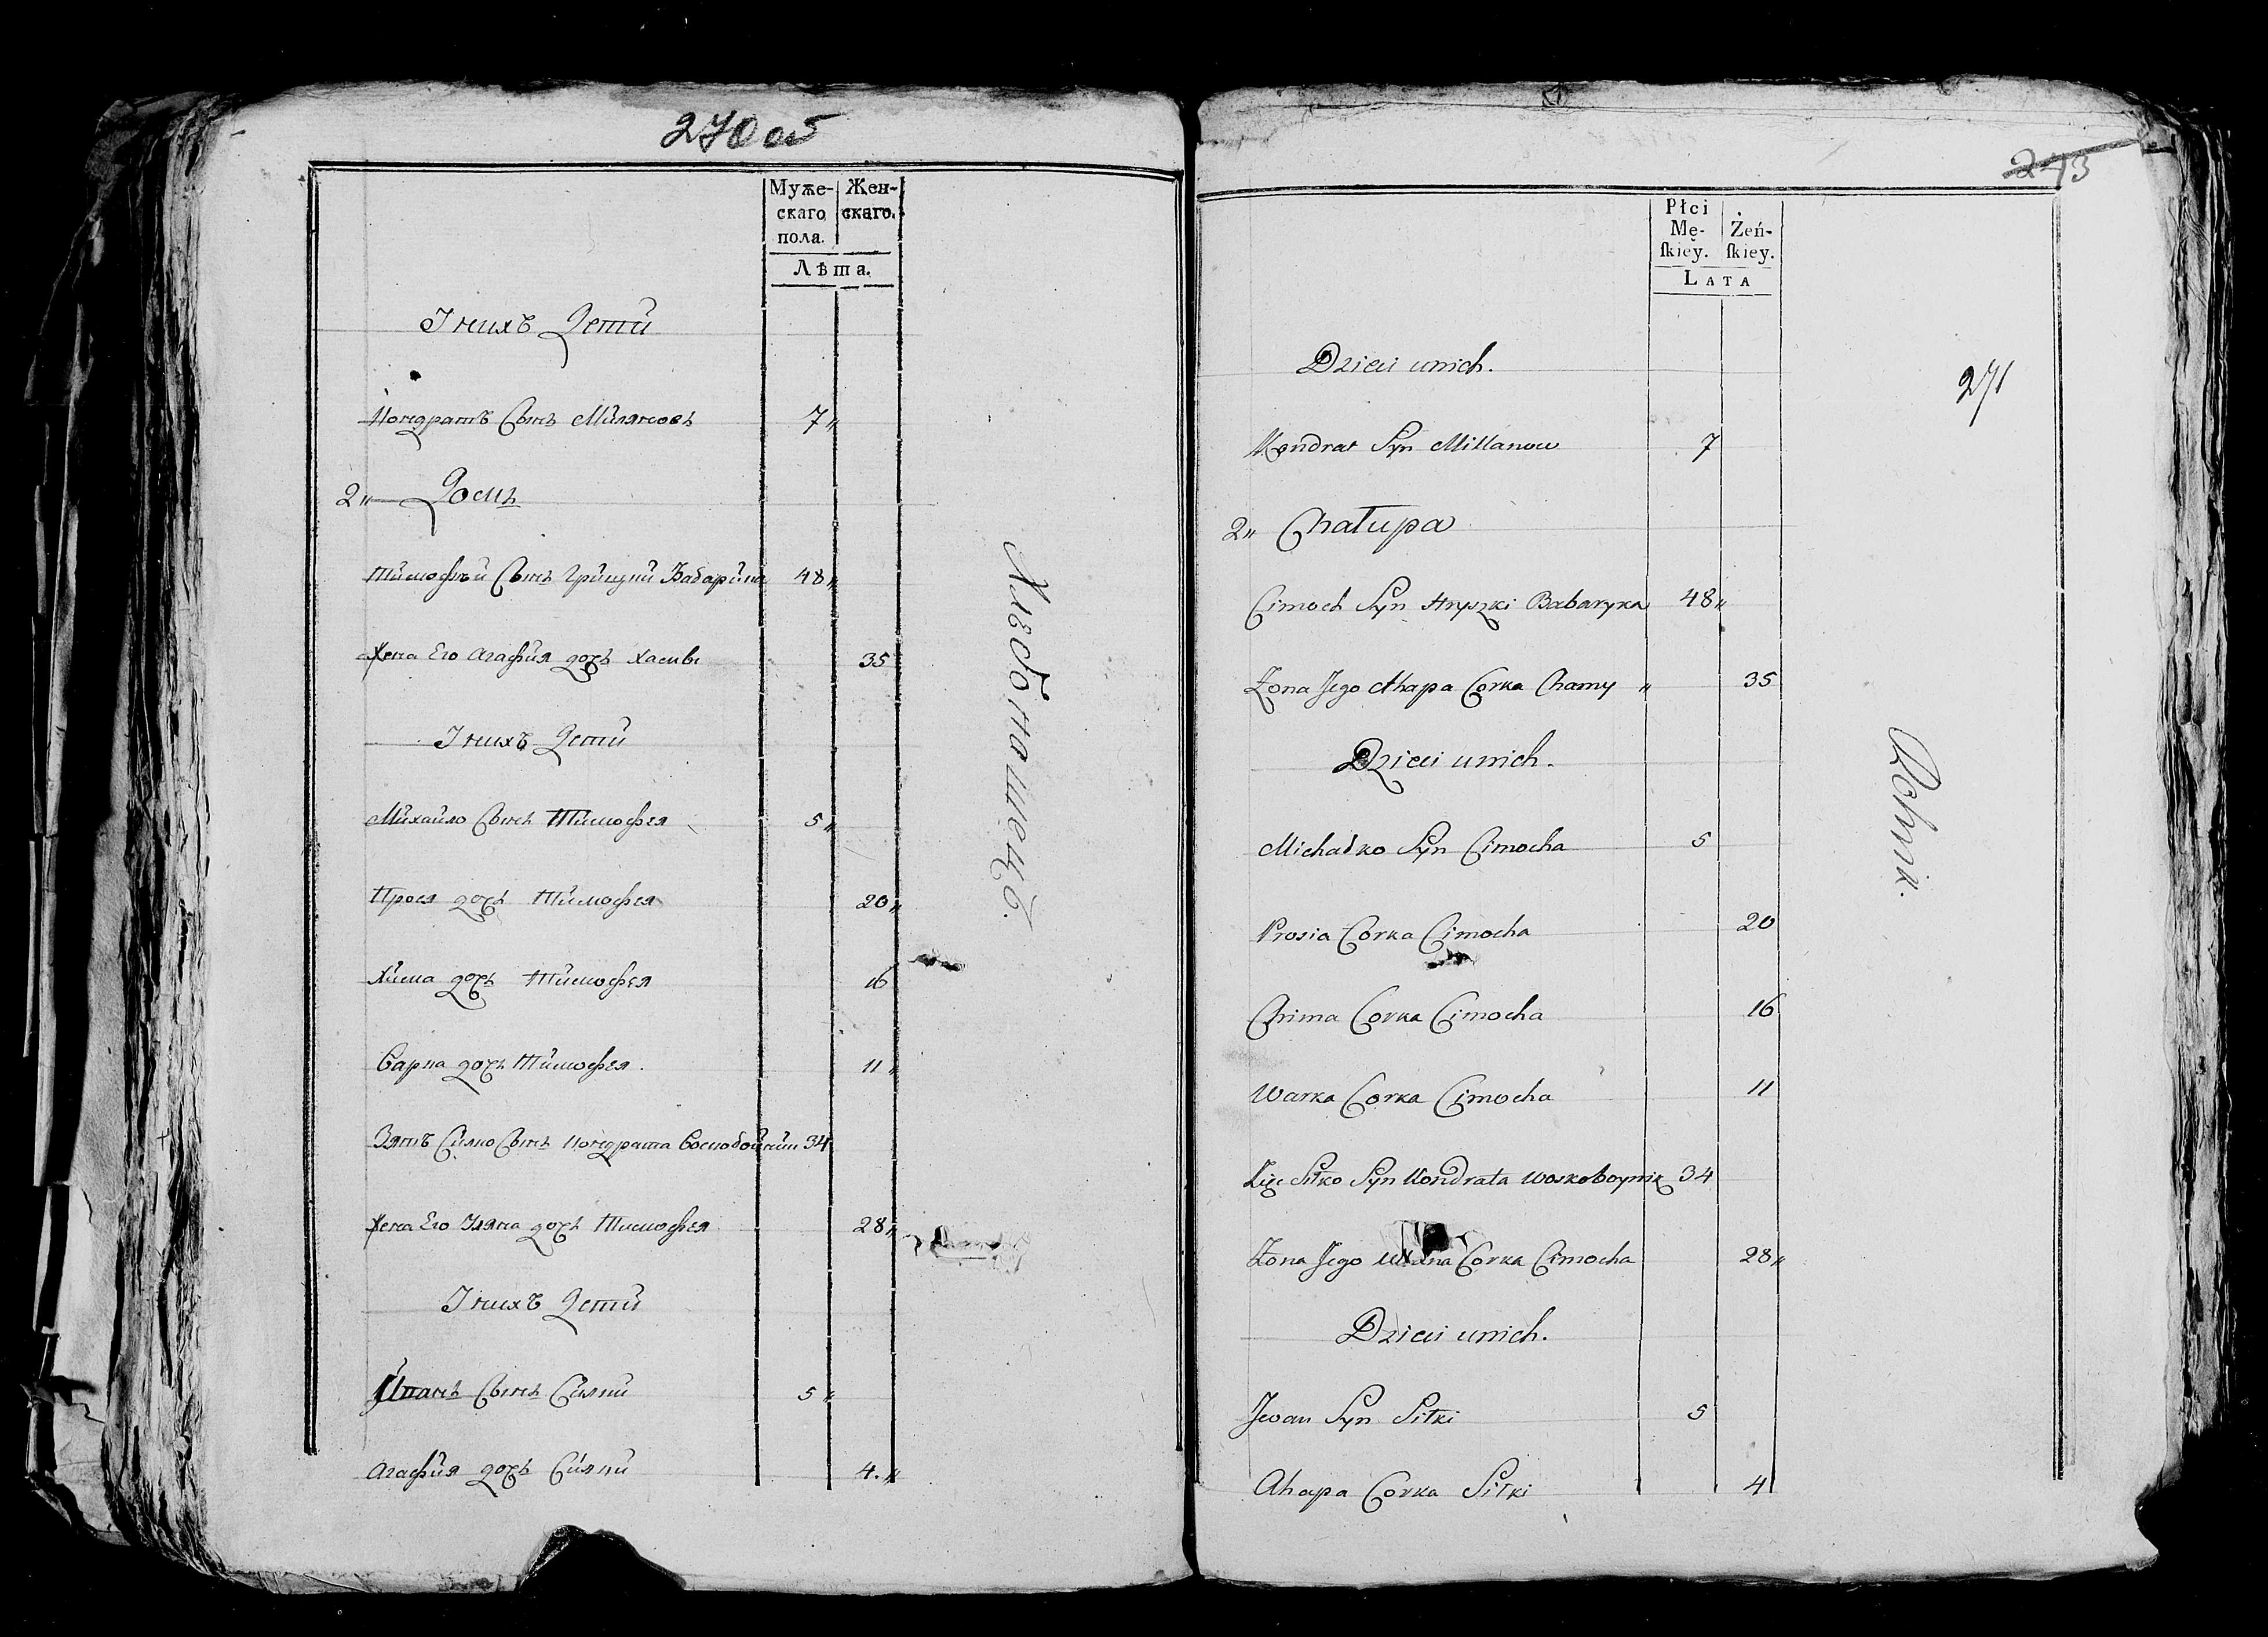 270 об
Муже- Жен-
скаго скаго.
пола.
Лѣта.
У нихъ Дети
Кондратъ Сынъ Миляновъ 7"
2" Домъ
Тимофѣй Сынъ Грицки Бабарика 48"
Жена Его Агафия дочъ Хамы 35
У нихъ Дети
Михайло Сынъ Тимофея 5"
Прося дочъ Тимофея 20"
Хима дочъ Тимофея 16
Варка дочъ Тимофея 11"
Зять Силко Сынъ Кондрата Воскобойник 34
Жена Его Уляна дочъ Тимофея 28"
У нихъ Дети
Иванъ Сынъ Силки 5"
Агафия дочъ Силки 4."
Хлебопашецъ.
273
Płci
Mę- Żeń-
skiey. skiey.
LATA
271
Dzieci unich.
Kondrat Syn Millanow 7
2" Chałupa
Cimoch Syn Hryszki Babaryka 48"
Zona Jego Ahapa Corka Chamy " 35
Dzieci unich.
Michałko Syn Cimocha 5
Prosia Corka Cimocha 20
Chima Corka Cimocha 16
Warka Corka Cimocha 11
Zięc Siłko Syn Kondrata Woskoboynik 34
Zona Jego Corka Cimocha 28"
Dzieci unich.
Jwan Syn Siłki 5
Ahapa Corka Siłki 4
Rolnik.